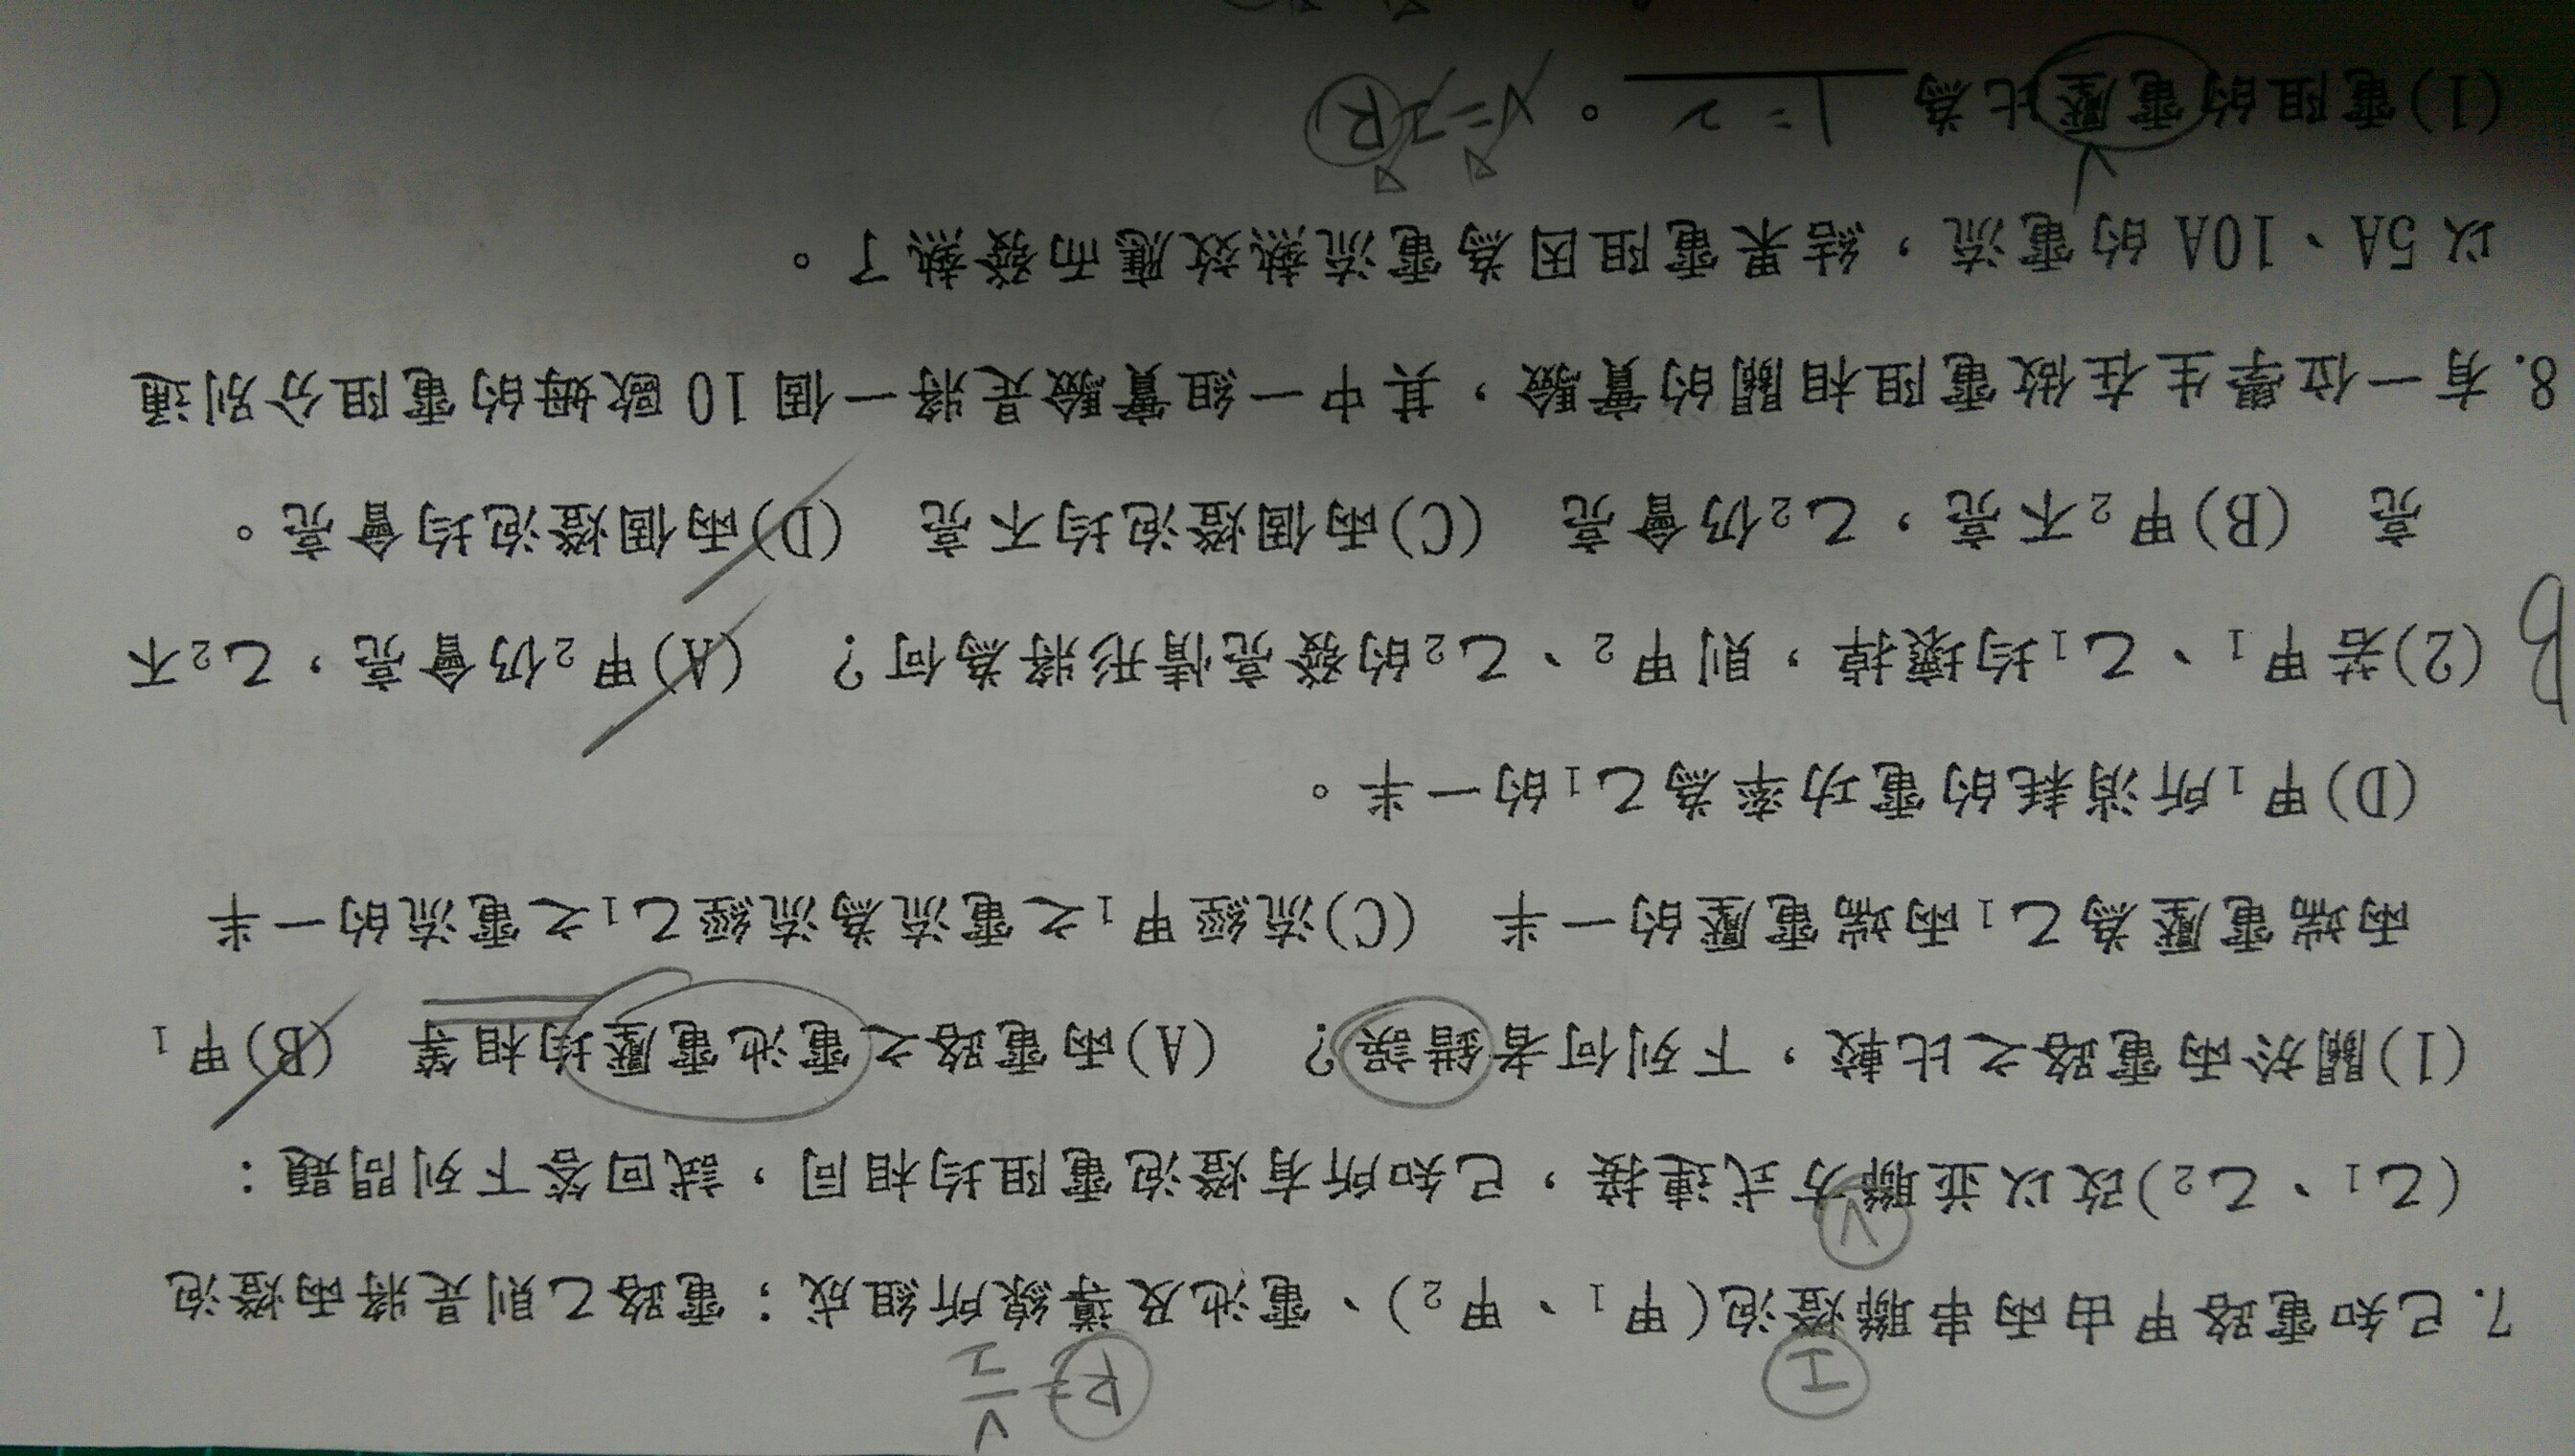 R=V/I
I
7.已知電路甲由兩串聯燈泡(甲1、甲2)、電池及導線所組成；電路乙則是將兩燈泡
V
(乙1、乙2)改以並聯方式連接，已知所有燈泡電阻均相同，試回答下列問題：
(1)關於兩電路之比較，下列何者錯誤？ (A)兩電路之電池電壓均相等 (B)甲1
兩端電壓為乙1兩端電壓的一半 (C)流經甲1之電流為流經乙1之電流的一半
(D)甲1所消耗的電功率為乙1的一半。
B (2)若甲1、乙1均壞掉，則甲2、乙2的發亮情形將為何？ (A)甲2仍會亮，乙2不
亮 (B)甲2不亮，乙2仍會亮 (C)兩個燈泡均不亮 (D)兩個燈泡均會亮。
8.有一位學生在做電阻相關的實驗，其中一組實驗是將一個10歐姆的電阻分別通
以5A、10A的電流，結果電阻因為電流熱效應而發熱了。
(1)電阻的電壓比為 1:2 。 V=IR